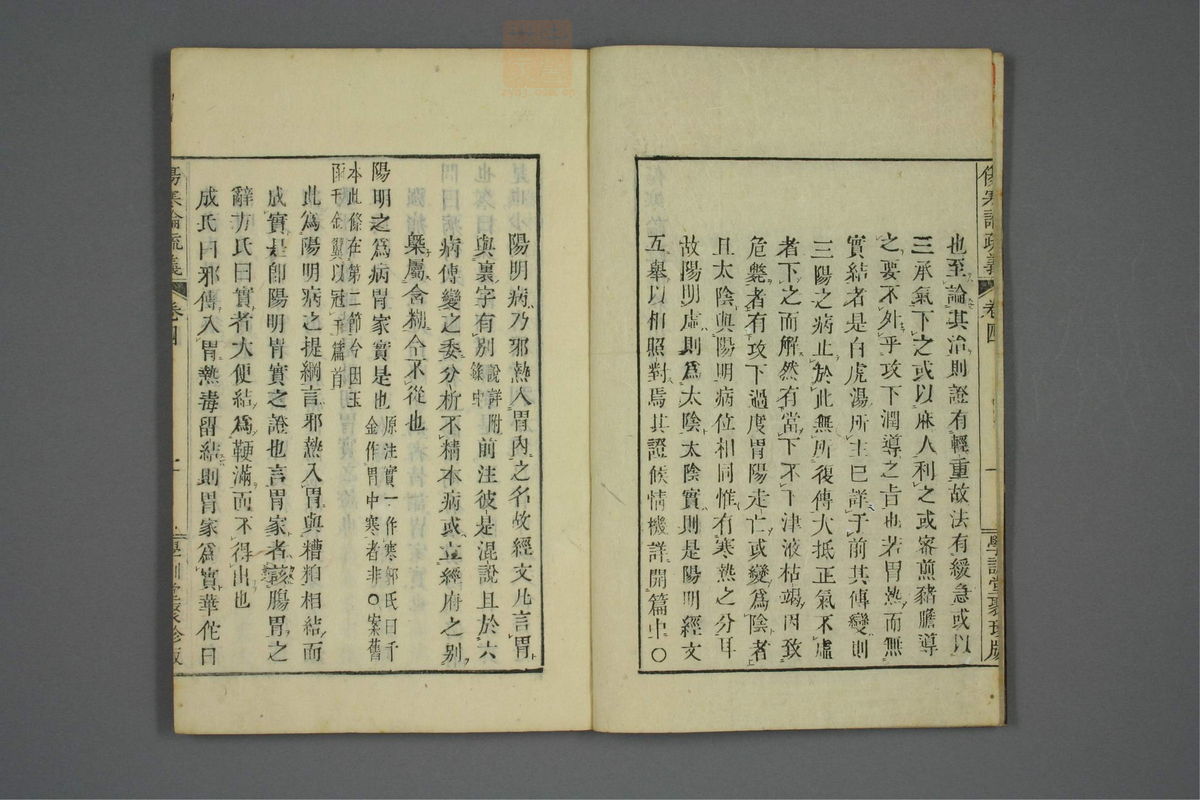 也至論其治則證有輕重故法有緩急或以
三承氣下之或以麻人利之或審煎豬膽導
之要不外乎攻下潤導之旨也若胃熱而無
實結者是白虎湯所主巳詳于前其傳變則
三陽之病止於此無所復傳大抵正氣不虛
者下之而解然有當下不下津液枯竭因致
危斃者有攻下過度胃陽走亡或變爲陰者
且太陰與陽明病位相同惟有寒熱之分耳
故陽明虛則爲太陰太陰實則是陽明經文
互舉以相照對焉其證候情機詳開篇中〇
陽明病乃邪熱入胃內之名故經文凡言胃
與裏字有別說詳附
錄中前注彼是混說且於六
病傳變之委分析不精本病或立經府之別
槩屬含糊今不從也
陽明之爲病胃家實是也原注實一作寒郭氏曰千
金作胃中寒者非〇案舊
本此條在第二節今因玉
函千金翼以冠于篇首
此爲陽明病之提綱言邪熱入胃與糟粕相結而
成實是卽陽明胃實之證也言胃家者該腸胃之
辭方氏曰實者大便結爲鞕滿而不得出也
成氏曰邪傳入胃熱毒留結則胃家爲實華佗曰
傷寒論疏義
卷四
一
學訓堂聚珍版
傷寒論疏義
卷四
學訓堂聚珍版